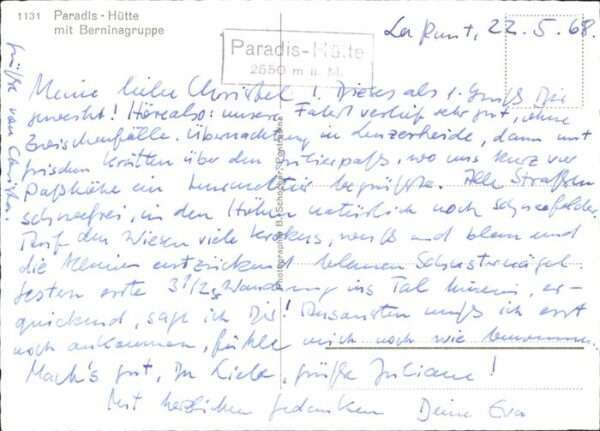 1131 Paradis - Hütte
mit Berninagruppe
Paradis-Hütte
2550 m ü. M.
La Punt, 22.5.68.
Meine liebe Christel! Dieses als 1. Gruß Dir
geweiht! Höre also: unsere Fahrt verlief sehr gut, ohne
Zwischenfälle. Übernachtung in Lenzerheide, dann mit
frischen Kräften über den Julierpaß, wo uns kurz vor
Paßhöhe ein begrüßte. Alle Straßen
schneefrei, in den Höhen natürlich noch schneefelder.
Auf den Wiesen viele Krokus, weiß und blau und
die kleinen entzückend blauen Schusternägel.
Gestern erste 3 1/2 Wanderung ins Tal hinein, er-
quickend, sage ich Dir! Ansonsten muß ich erst
noch ankommen, fühle mich noch wie benommen.
Mach's gut, Du Liebe, grüße Juliane!
Mit herzlichem Gedenken Deine Eva
Grüße von